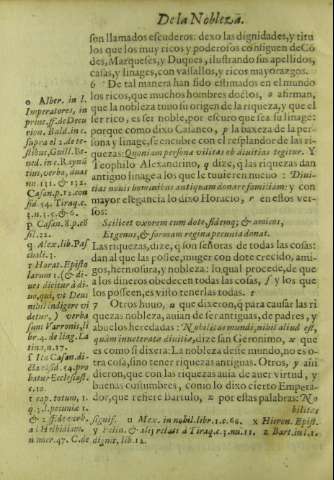 De la Nobleza.
son llamados escuderos: dexo las dignidades, y titu
los que los muy ricos y poderosos consiguen de Cō
des, Marqueses, y Duques, ilustrando sus apellidos,
casas, y linages, con vasallos, y ricos mayorazgos.
6 De tal manera han sido estimados en el mundo
los ricos, que muchos hombres doctos, o afirman,
que la nobleza tuuo su origen de la riqueza, y que el
ser rico, es ser noble, por escuro que sea su linage:
porque como dixo Casaneo, p la baxeza de la per-
sona y linage, se encubre con el resplandor de las ri-
quezas: Quoniam persona vilitas ob diuitias tegitur. Y
Teophilo Alexandrino, q dize, q las riquezas dan
antiguo linage a los que le tuuieren nueuo: Diui-
tias nouis hominibus antiquam donare familiam: y con
mayor elegancia lo dixo Horacio, r en estos ver-
sos:
Scilicet vxorem cum dote, fidémq; & amicos,
Et genus, & formam regina pecunia donat.
Las riquezas, dize, q son señoras de todas las cosas:
dan al que las posee, muger con dote crecido, ami-
gos, hermosura, y nobleza: lo qual procede, de que
a los dineros obedecen todas las cosas, s y los que
los posseen, es visto tenerlas todas. t
7 Otros huuo, u que dixeron, q para causar las ri
quezas nobleza, auian de ser antiguas, de padres, y
abuelos heredadas: Nobilitas mundi, nihil aliud est,
quàm inueteratæ diuitiæ, dize san Geronimo, x que
es como si dixera: La nobleza deste mundo, no es o-
tra cosa, sino tener riquezas antiguas. Otros, y aña
dieron, que con las riquezas auia de auer virtud, y
buenas costumbres, como lo dixo cierto Empera-
dor, que refiere Bartulo, z por estas palabras: No
bilitas
o Alber. in l.
Imperatores, in
princ. ff. de Decu
rion. Bald. in c.
supra el 2. de te-
stibus, Guill. Be-
ned. in c. Raynu
tius, verbo, duas
nu. 131. & 132.
p Casan. 8. p. cō
sil. 22.
q Alex. lib. Pas
chale. 3.
r Horat. Episto
larum 1.
t cap. totum. 1.
u Mex. in nobil. libr. 1. c. 64. x Hieron. Epist.
z Bart. in l. 1.
C. de dignit. lib. 12.